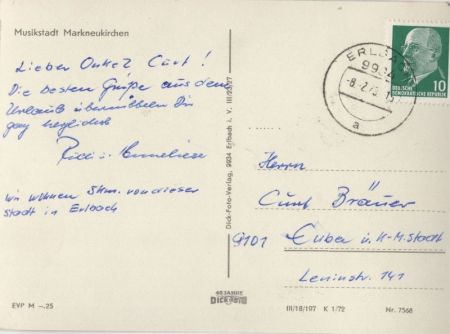 Musikstadt Markneukirchen
Lieber Onkel Curt!
Die besten Grüße aus dem
Urlaub übermitteln Dir
ganz herzlich
Anneliese
Wir wohnen 5km. von dieser
Stadt in Erlbach
EVP M –.25
Dick-Foto-Verlag, 9934 Erlbach i. V. III/23/27
40 JAHRE
DICK-FOTO
ERLBACH
9934
a
10
DEUTSCHE
DEMOKRATISCHE REPUBLIK
Herrn
Curt Bräuer
9101 Euba ü. K-M.Stadt
Leninstr. 141
III/18/197 K 1/72 Nr. 7568